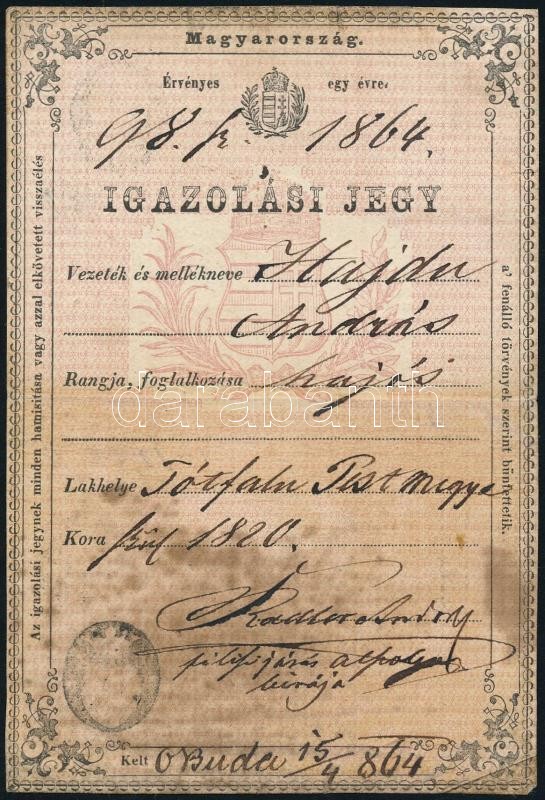 Magyarország.
Érvényes egy évre.
98. 1864.
IGAZOLÁSI JEGY
Vezeték és mellékneve Hajdu
András
Rangja, foglalkozása hajós
darabanth
Lakhelye Tótfalu Pest megye
Kora szül 1820.
pilisi járás
birája
Kelt O Buda 15/4 864
Az igazolási jegynek minden hamisítása vagy azzal elkövetett visszaélés
a' fenálló törvények szerint büntettetik.